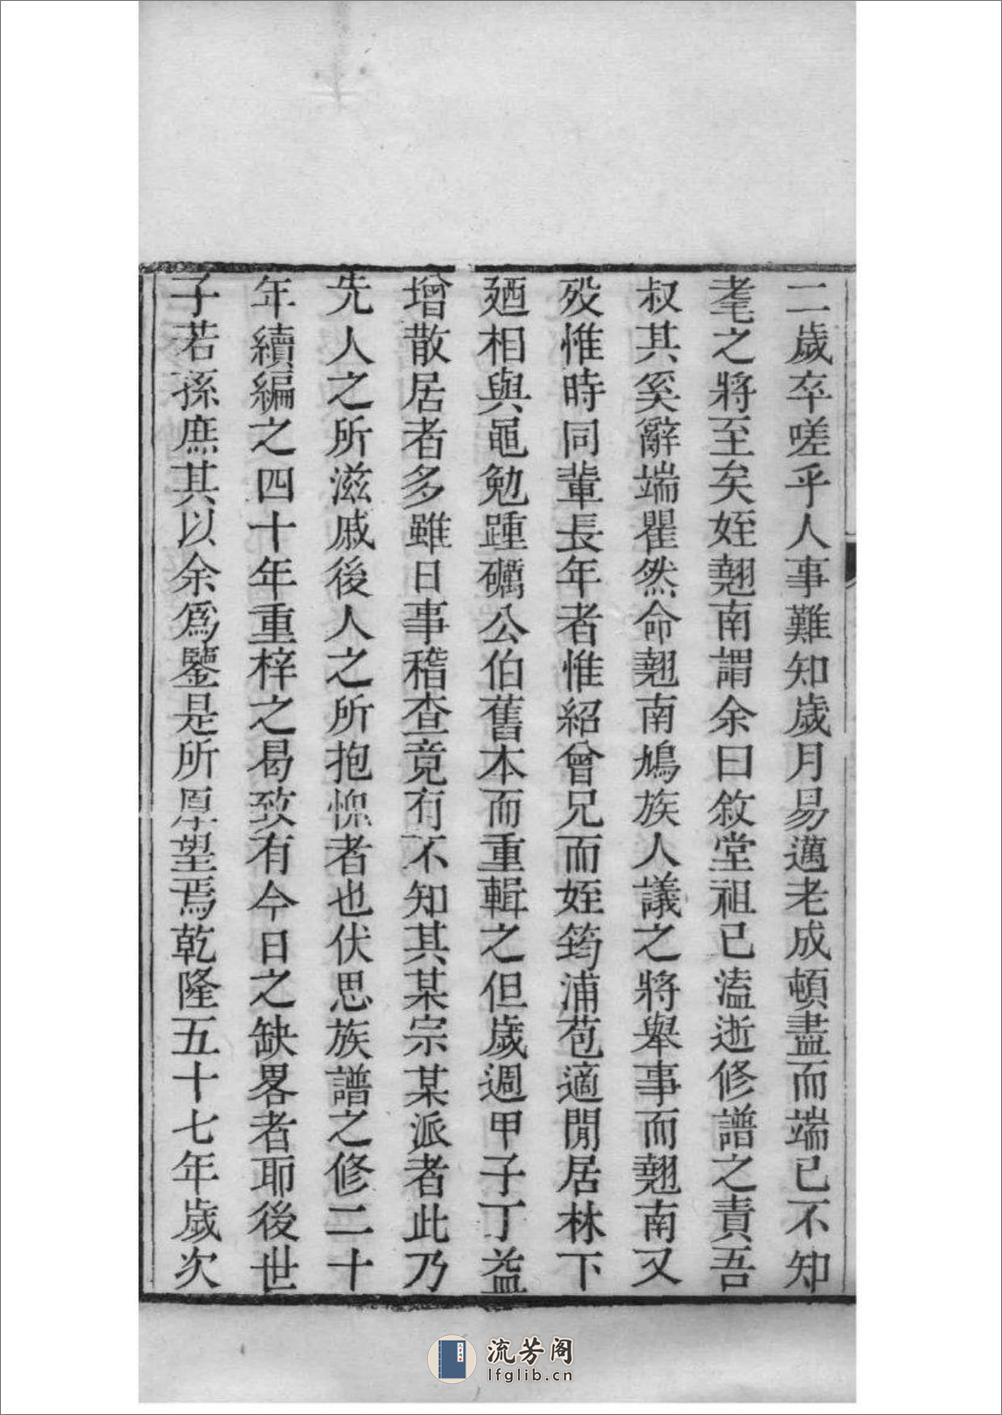 二歲卒嗟乎人事難知歲月易邁老成頓盡而端已不知
耄之將至矣姪翹南謂余曰敘堂祖已溘逝修譜之責吾
叔其奚辭端瞿然命翹南鳩族人議之將舉事而翹南又
歿惟時同輩長年者惟紹曾兄而姪筠浦苞適閒居林下
廼相與黽勉踵礪公伯舊本而重輯之但歲週甲子丁益
增散居者多雖日事稽查竟有不知其某宗某派者此乃
先人之所滋戚後人之所抱愧者也伏思族譜之修二十
年續編之四十年重梓之曷致有今日之缺畧者耶後世
子若孫庶其以余爲鑒是所厚望焉乾隆五十七年歲次
流芳阁
lfglib.cn